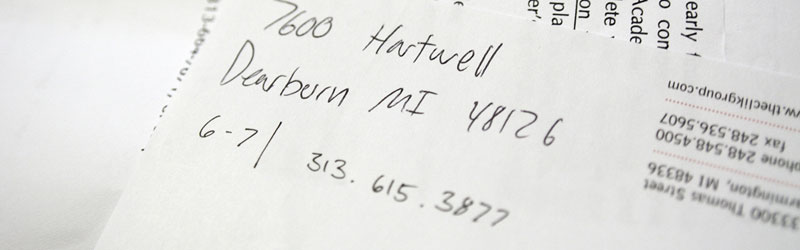 7600 Hartwell
Dearburn MI 48126
6-7/
313.615.3877
33300 Thomas Street
rmington, MI 48336
phone 248.548.4500
fax 248.536.5607
w.theclikgroup.com
early
o con
Acade
lete
on
pla
er'